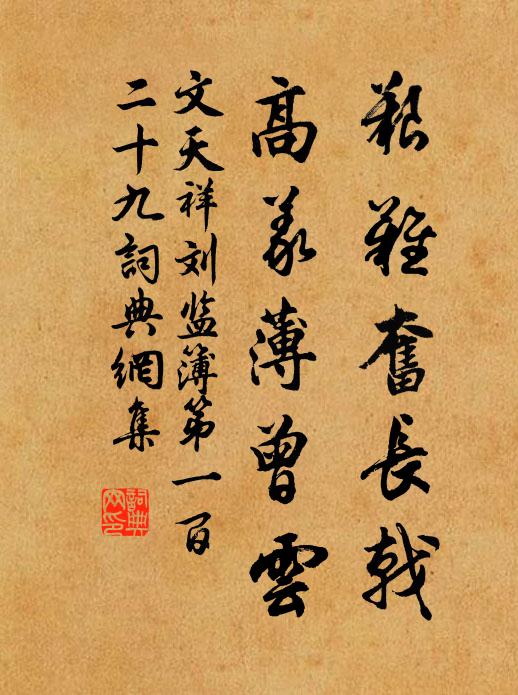 艱難奮長戟
高義薄曾雲
文天祥刘监簿第一百
二十九詞典網集
詞典
网印